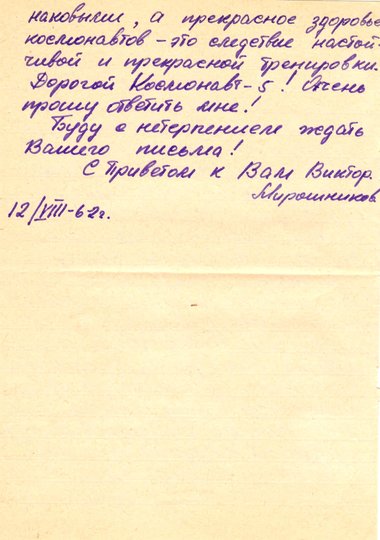 наковыми, а прекрасное здоровье
космонавтов – это следствие настой-
чивой и прекрасной тренировки.
Дорогой Космонавт-5! Очень
прошу ответить мне!
Буду с нетерпением ждать
Вашего письма!
С Приветом к Вам Виктор.
Мирошников.
12/VIII-62г.